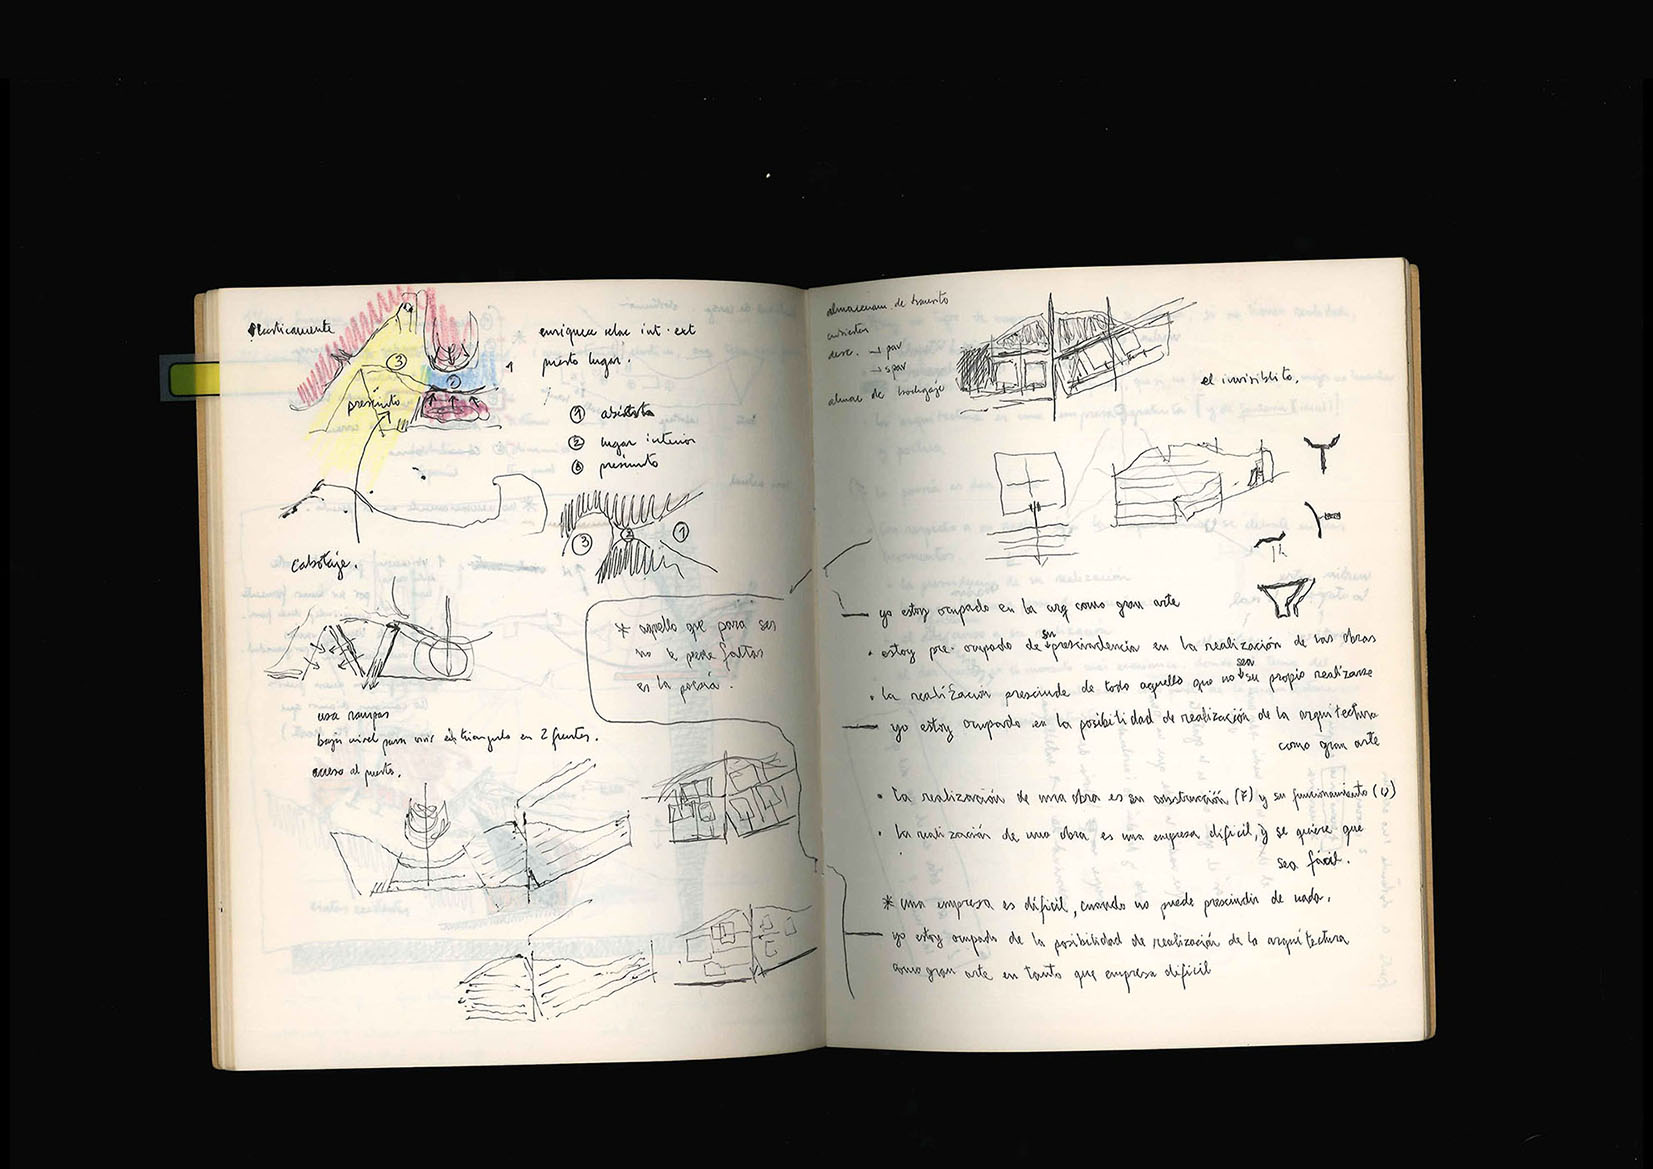 plasticamente
presinto
3
2
1
enriquece relac int-ext
puesto lugar.
① abierta
② lugar interior
③ presinto
3
2
1
cabotaje.
* aquello que para ser
no le puede faltar
es la poesía.
usa rampas
bajo nivel para vivir el triangulo en 2 frentes.
acceso al puerto.
almacenam. de transito
desc. → pav
→ s pav
almac de bodegaje
el invisiblito.
yo estoy ocupado en la arq como gran arte
• estoy pre-ocupado de su prescindencia en la realización de las obras
• la realización prescinde de todo aquello que no sea su propio realizarse
yo estoy ocupado en la posibilidad de realización de la arquitectura
como gran arte
• la realización de una obra es su construcción (F) y su funcionamiento (U)
• la realización de una obra es una empresa dificil, y se quiere que
sea fácil.
* una empresa es dificil, cuando no puede prescindir de nada.
yo estoy ocupado de la posibilidad de realización de la arquitectura
como gran arte en tanto que empresa dificil